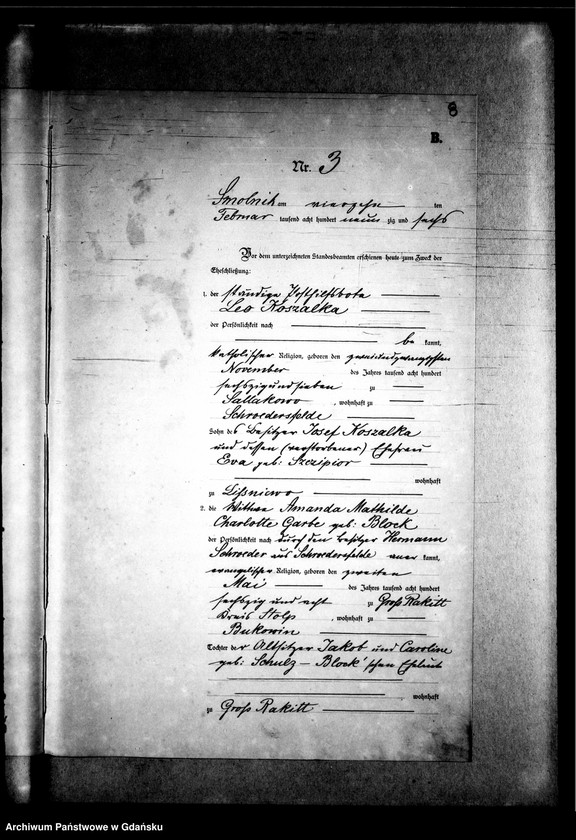 8
B.
Nr. 3
Smolnik am vierzehn ten
Februar tausend acht hundert neun zig und sechs
Vor dem unterzeichneten Standesbeamten erschienen heute zum Zweck der
Eheschließung:
1. der ständige Posthilfsbote
Leo Koszalka
der Persönlichkeit nach
be kannt,
katholischer Religion, geboren den zweiundzwanzigsten
November des Jahres tausend acht hundert
sechszig und sieben zu
Sallakowo, wohnhaft zu
Schroedersfelde
Sohn des Besitzer Josef Koszalka
und dessen (verstorbener) Ehefrau
Eva geb: Szczipior
wohnhaft
zu Lissniewo
2. die Wittwe Amanda Mathilde
Charlotte Garbe geb: Block
der Persönlichkeit nach durch den Besitzer Hermann
Schroeder aus Schroedersfelde aner kannt,
evangelischer Religion, geboren den zweiten
Mai des Jahres tausend acht hundert
sechszig und acht zu Groß Rakitt
Kreis Stolp, wohnhaft zu
Bukowin
Tochter der Altsitzer Jakob und Caroline
geb: Schulz - Block'schen Eheleute
wohnhaft
zu Groß Rakitt
Archiwum Państwowe w Gdańsku